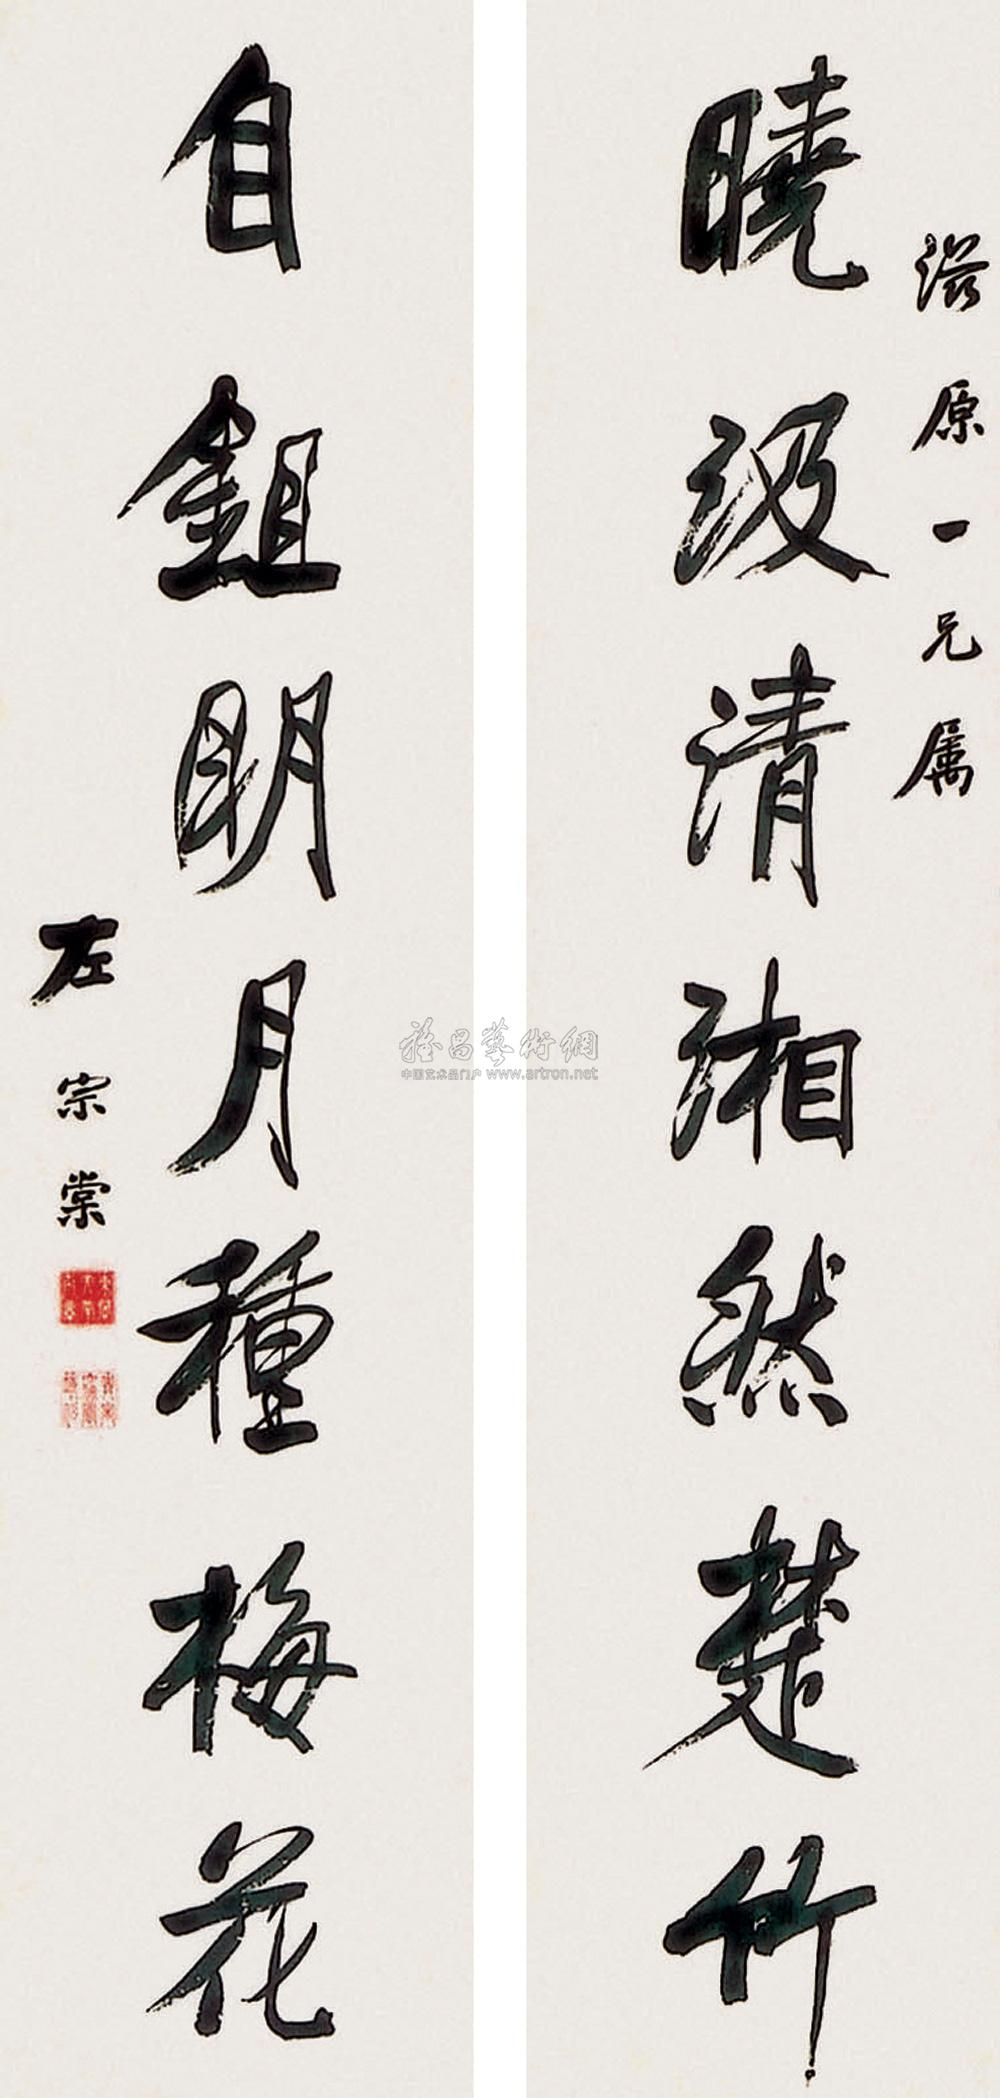 滋原一兄属
曉汲清湘然楚竹
自鉏明月種梅花
左宗棠
雅昌藝術網
中国艺术品门户 www.artron.net